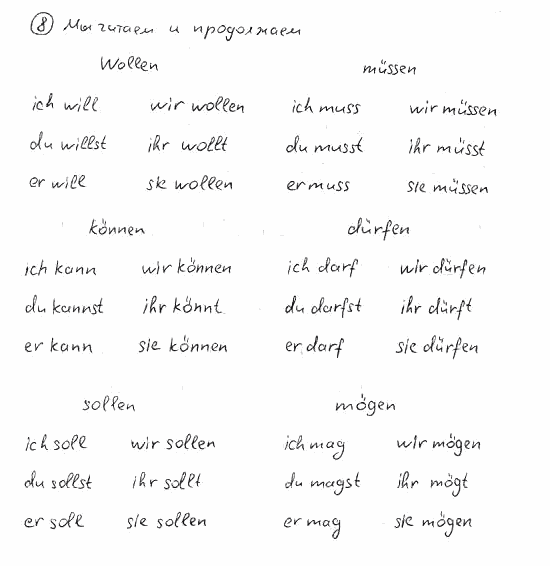 ⑧ Мы читаем и продолжаем
Wollen müssen
ich will wir wollen ich muss wir müssen
du willst ihr wollt du musst ihr müsst
er will sie wollen er muss sie müssen
können dürfen
ich kann wir können ich darf wir dürfen
du kannst ihr könnt du darfst ihr dürft
er kann sie können er darf sie dürfen
sollen mögen
ich soll wir sollen ich mag wir mögen
du sollst ihr sollt du magst ihr mögt
er soll sie sollen er mag sie mögen